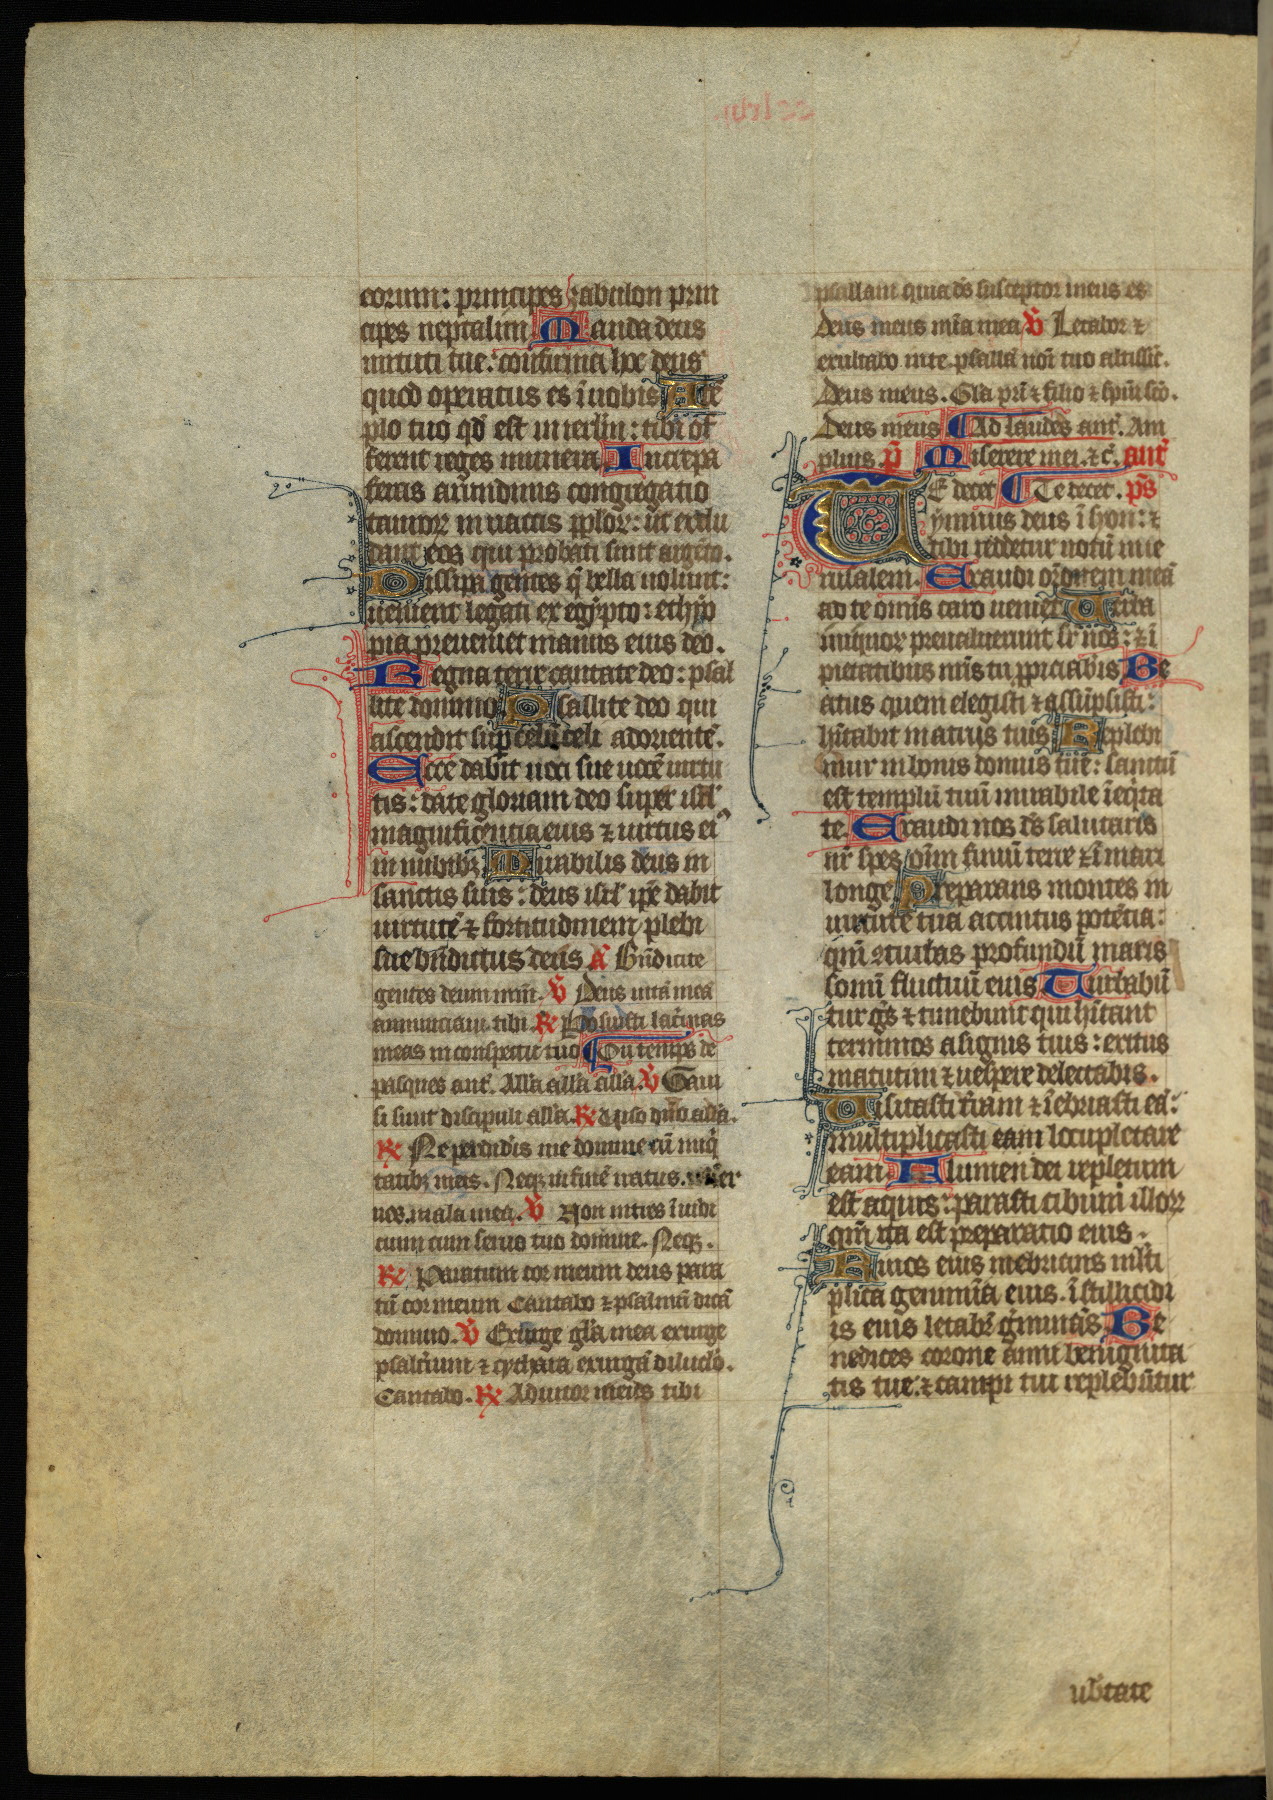 eorum: principes zabulon prin
cipes neptalim Manda deus
uirtuti tue: confirma hoc deus
quod operatus es ī nobis A tē
plo tuo qď est in ierłm: tibi of
ferent reges munera Increpa
feras arundinis congregatio
taurorꝝ in uaccis ꝑploꝝ: ut exclu
dant eos qui probati sunt argēto.
Dissipa gentes q̄ bella uolunt:
uenient legati ex egypto: ethyo
pia preueniet manus eius deo.
Regna terre cantate deo: psal
lite domino Psallite deo qui
ascendit suꝑ celū celi ad orientē.
Ecce dabit uoci sue uocē uirtu
tis: date gloriam deo super isrł
magnificentia eius ⁊ uirtus eiꝰ
in nubibꝫ Mirabilis deus in
sanctis suis: deus isrł ip̄e dabit
uirtutē ⁊ fortitudinem plebi
sue bn̄dictus deus A̅ Bn̄dicite
gentes deum nr̄m. V̅ Deus uitā meā
annunciaui tibi. R̷ Posuisti lac̄mas
meas in conspectu tuo Ou temps de
pasques ant̄. Alł'a alł'a alł'a. V̅ Gaui
si sunt discipuli alł'a. R̷ Uiso dn̄o alł'a.
R̷ Ne perdideris me domine cū iniq̄
tatibꝫ meis. Neqꝫ in finē iratus.
nes. mala mea. V̅ Non intres ī iudi
cium cum seruo tuo domine. Neqꝫ.
R̷ Paratum cor meum deus para
tū cor meum Cantabo ⁊ psalmū dicā
domino. V̅ Exurge gł'a mea exurge
psalt̄ium ⁊ cythara exurgā diluc̄lo.
Cantabo. R̷ Adiutor meus tibi
psallam quia ds̄ susceptor meus es
Deus meus mīa mea V̅ Letabor ⁊
exultabo in te. psallā noī tuo altissī.
Deus meus. Gł'a pr̄i ⁊ filio ⁊ spīui scō.
Deus meus Ad laudes ant̄. Am
plius. p̄ Miserere mei. ⁊c̄. ant̄
TE decet Te decet. ps̄
ymnus deus ī syon: ⁊
tibi reddetur uotū in ie
rusalem. Exaudi or̄onem meā
ad te omīs caro ueniet Uerba
iniquoꝝ preualuerunt sr̄ nos: ⁊ ī
pietatibus nr̄is tu ꝓpiciabis Be
atus quem elegisti ⁊ assūpsisti:
hītabit in atrijs tuis Reple bi
mur in bonis domus tue: sanctū
est templū tuū mirabile ī eq̄ta
te. Exaudi nos ds̄ salutaris
nr̄ spes oīm finiū terre ⁊ ī mari
longe Preparans montes in
uirtute tua accintus potētia:
qui cōturbas profundū maris
sonū fluctuū eius Turbabū
tur gēs ⁊ timebunt qui hītant
terminos a signis tuis: exitus
matutini ⁊ uespere delectabis.
Uisitasti t̄ram ⁊ īebriasti eā:
multiplicasti eam locupletare
eam Flumen dei repletum
est aquis: parasti cibum illoꝝ
qm̄ ita est preparatio eius.
Riuos eius inebrians ml̄ti
plica genimīa eius. ī stillicidi
is eius letabr̄ gīminās Be
nedices corone anni benignita
tis tue: ⁊ campi tui replebūtur
ub̄tate